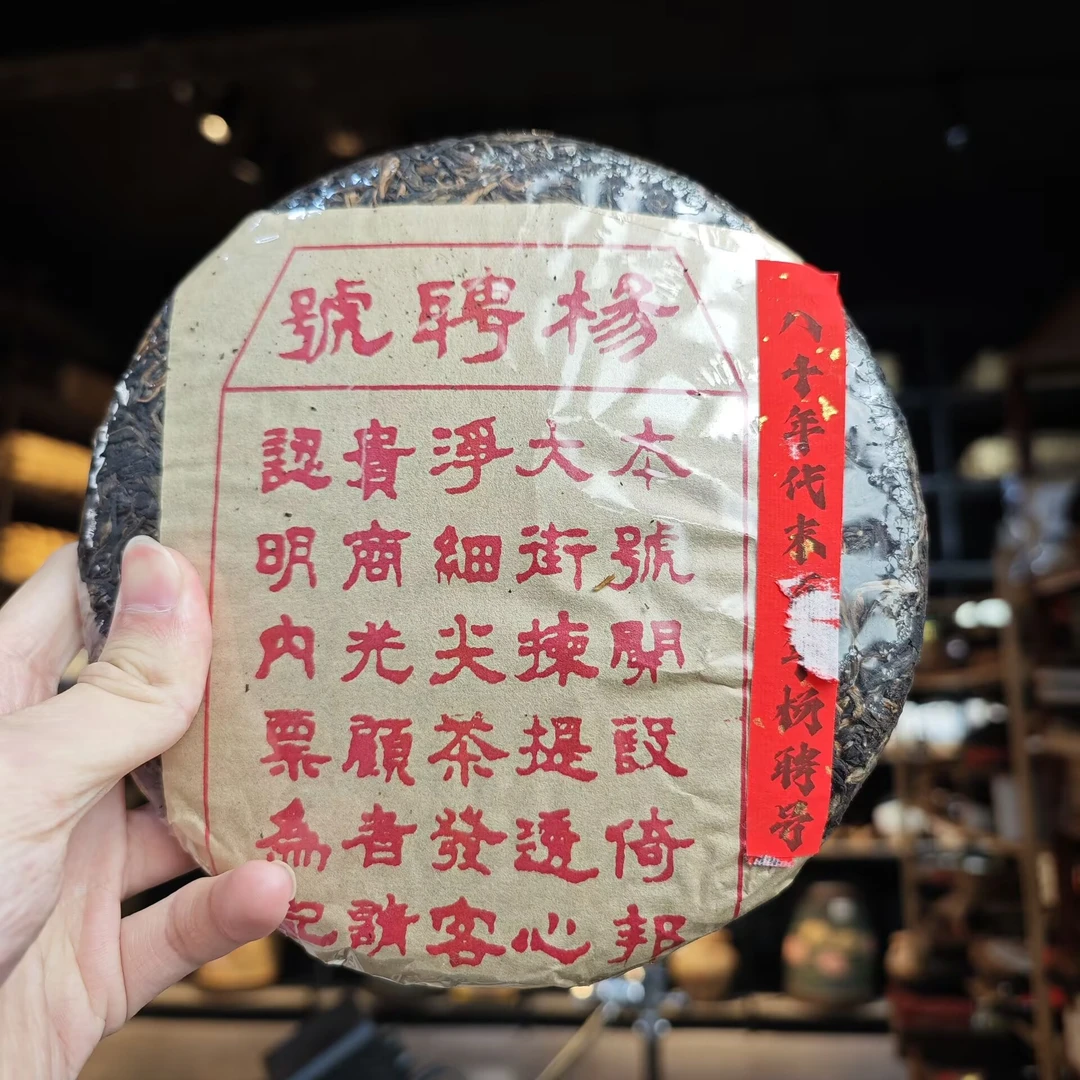 楊聘號
本號開設倚邦
大街揀提透心
淨細尖茶發客
貴商光顧者請
認明內票為記
八十年代末
杨聘号